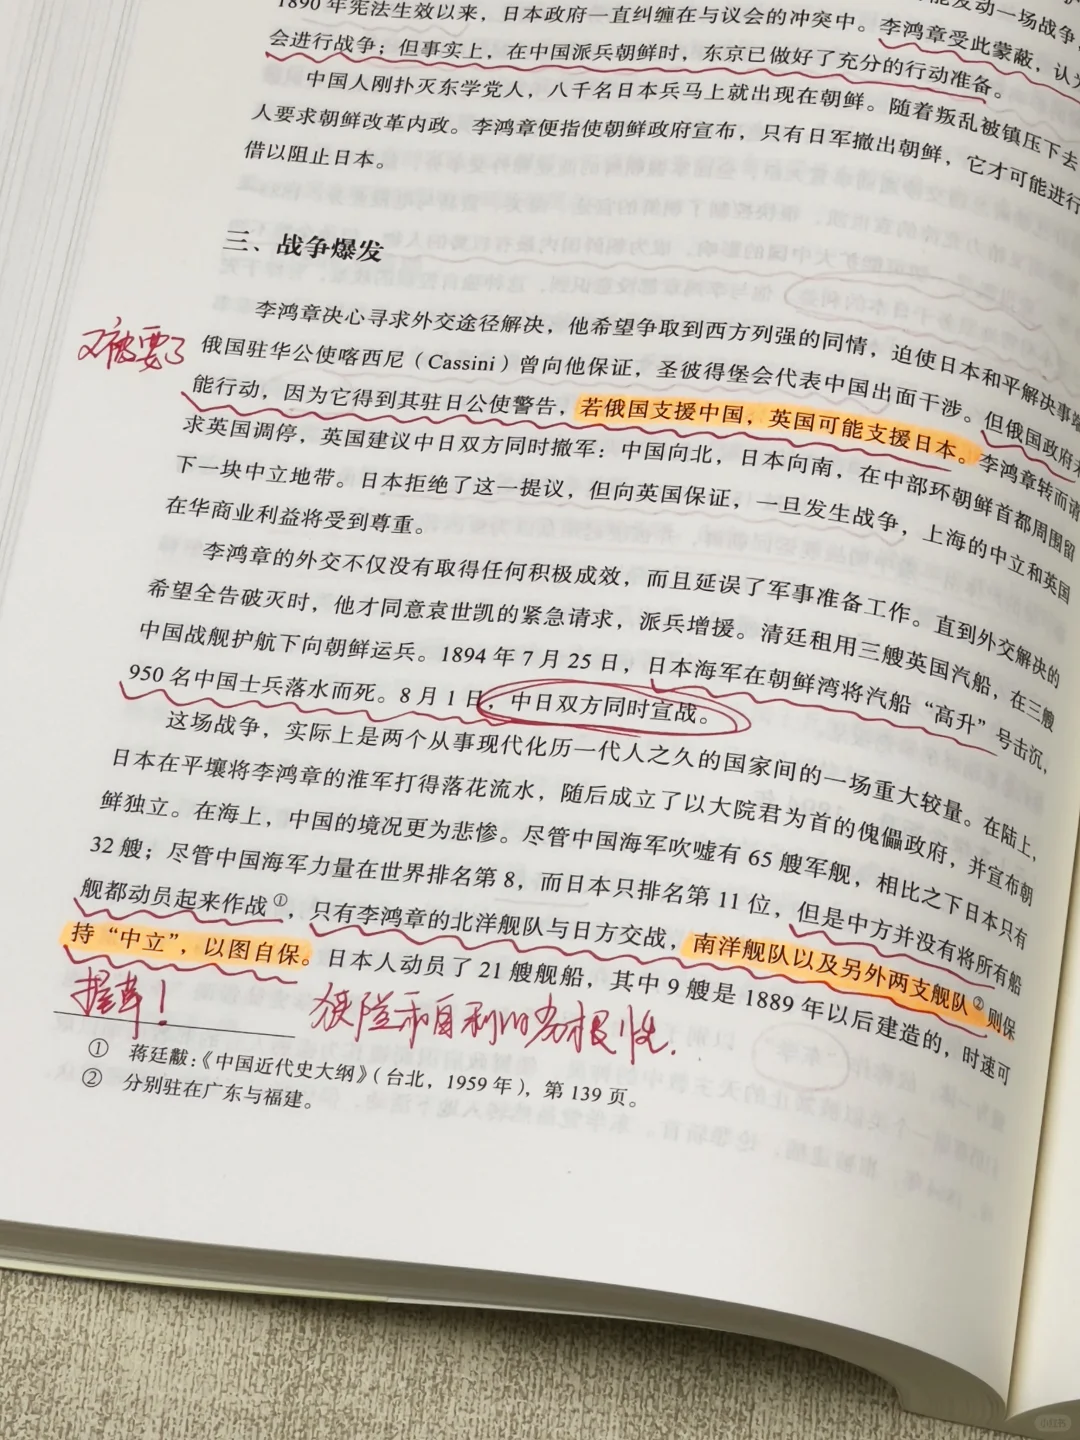 1890年宪法生效以来，日本政府一直纠缠在与议会的冲突中。李鸿章受此蒙蔽，认为
会进行战争；但事实上，在中国派兵朝鲜时，东京已做好了充分的行动准备。
中国人刚扑灭东学党人，八千名日本兵马上就出现在朝鲜。随着叛乱被镇压下去
人要求朝鲜改革内政。李鸿章便指使朝鲜政府宣布，只有日军撤出朝鲜，它才可能进行
借以阻止日本。
三、战争爆发
李鸿章决心寻求外交途径解决，他希望争取到西方列强的同情，迫使日本和平解决事端
又被耍了
俄国驻华公使喀西尼（Cassini）曾向他保证，圣彼得堡会代表中国出面干涉。但俄国政府
能行动，因为它得到其驻日公使警告，若俄国支援中国，英国可能支援日本。李鸿章转而请
求英国调停，英国建议中日双方同时撤军：中国向北，日本向南，在中部环朝鲜首都周围留
下一块中立地带。日本拒绝了这一提议，但向英国保证，一旦发生战争，上海的中立和英国
在华商业利益将受到尊重。
李鸿章的外交不仅没有取得任何积极成效，而且延误了军事准备工作。直到外交解决的
希望全告破灭时，他才同意袁世凯的紧急请求，派兵增援。清廷租用三艘英国汽船，在三艘
中国战舰护航下向朝鲜运兵。1894年7月25日，日本海军在朝鲜湾将汽船“高升”号击沉，
950名中国士兵落水而死。8月1日，中日双方同时宣战。
这场战争，实际上是两个从事现代化历一代人之久的国家间的一场重大较量。在陆上，
日本在平壤将李鸿章的淮军打得落花流水，随后成立了以大院君为首的傀儡政府，并宣布朝
鲜独立。在海上，中国的境况更为悲惨。尽管中国海军吹嘘有65艘军舰，相比之下日本只有
32艘；尽管中国海军力量在世界排名第8，而日本只排名第11位，但是中方并没有将所有船
舰都动员起来作战①，只有李鸿章的北洋舰队与日方交战，南洋舰队以及另外两支舰队②则保
持“中立”，以图自保。日本人动员了21艘舰船，其中9艘是1889年以后建造的，时速可
狭隘和自利的劣根性.
① 蒋廷黻：《中国近代史大纲》（台北，1959年），第139页。
② 分别驻在广东与福建。
小红书